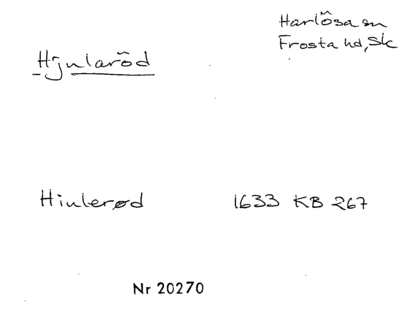 Hjularöd
Harlösa sn
Frosta hd, Sk
Hiulerød 1633 KB 267
Nr 20270